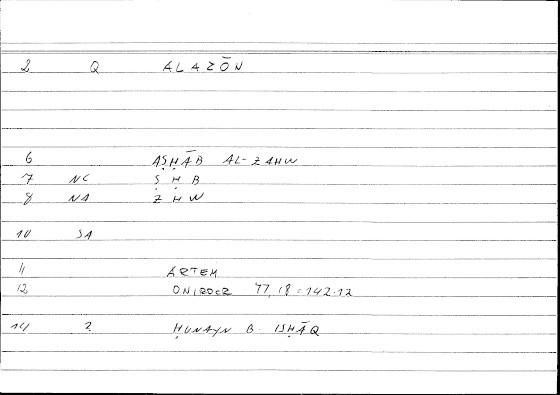 2 Q ALAZŌN
6 AṢḤĀB AL-ZAHW
7 NC Ṣ Ḥ B
8 NA Z H W
10 SA
11 ARTEM
12 ONIROCR 77,18 = 142.12
14 2 ḤUNAYN B. ISḤĀQ